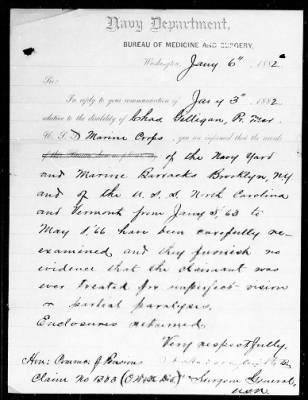 Navy Department,
BUREAU OF MEDICINE AND SURGERY,
Washington, Jany 6th, 1882
Sir:
In reply to your communication of Jany 3d 1882
relative to the disability of Chas Gilligan, P. Mar.
U. S. Marine Corps, you are informed that the records
of the Navy Yard
and Marine Barracks Brooklyn, NY
and of the U. S. S. North Carolina
and Vermont from Jany 5, '63 to
May 1, '66 have been carefully re-
examined and they furnish no
evidence that the claimant was
ever treated for imperfect vision
or partial paralysis.
Enclosures returned
Very respectfully,
Hon: Commr of Pensions
Claim No 1383 Surgeon General,
USN.